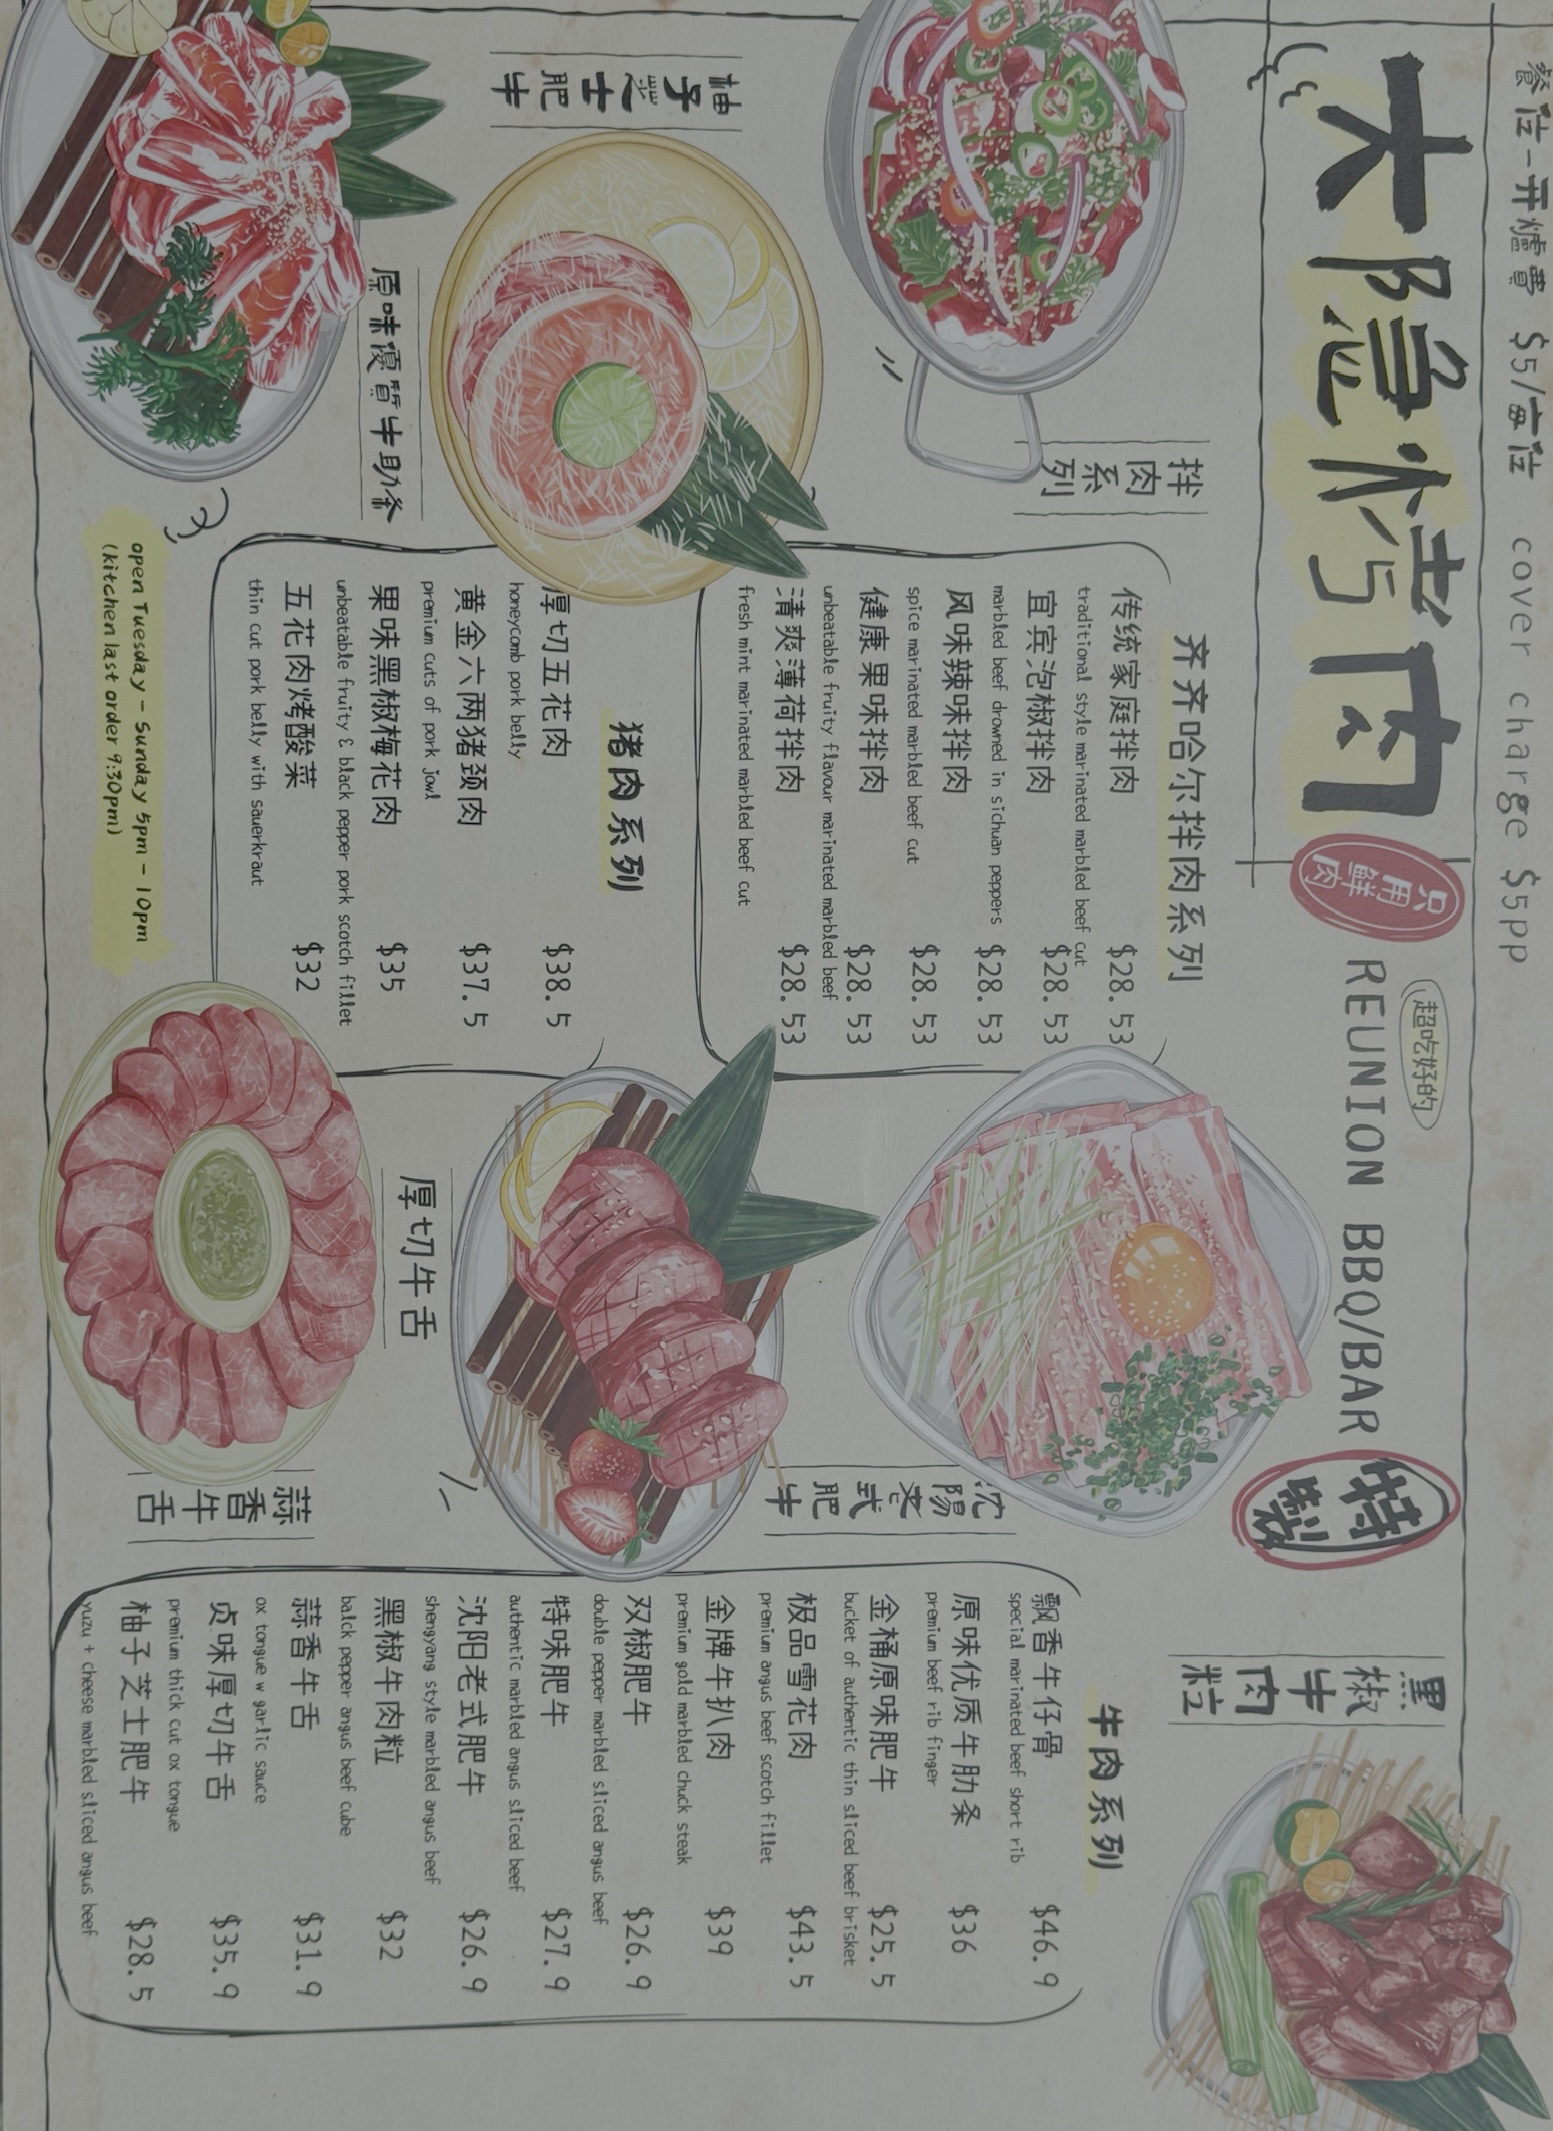 餐位-开爐費 $5/每位 cover charge $5pp
大隐烤肉
只用鮮肉
超吃好的
REUNION BBQ/BAR
特製
拌肉系列
柚子芝士肥牛
原味優質牛肋条
齐齐哈尔拌肉系列
传统家庭拌肉 $28.53
traditional style marinated marbled beef cut
宜宾泡椒拌肉 $28.53
marbled beef drowned in sichuan peppers
风味辣味拌肉 $28.53
spice marinated marbled beef cut
$28.53
健康果味拌肉 $28.53
unbeatable fruity flavour marinated marbled beef
清爽薄荷拌肉 $28.53
fresh mint marinated marbled beef cut
猪肉系列
厚切五花肉 $38.5
honeycomb pork belly
黄金六两猪颈肉 $37.5
premium cuts of pork jowl
果味黑椒梅花肉 $35
unbeatable fruity & black pepper pork scotch fillet
五花肉烤酸菜 $32
thin cut pork belly with sauerkraut
open Tuesday - Sunday 5pm - 10pm
(kitchen last order 9:30pm)
沈陽老式肥牛
厚切牛舌
蒜香牛舌
黑椒牛肉粒
牛肉系列
飘香牛仔骨 $46.9
special marinated beef short rib
原味优质牛肋条 $36
premium beef rib finger
金桶原味肥牛 $25.5
bucket of authentic thin sliced beef brisket
极品雪花肉 $43.5
premium angus beef scotch fillet
金牌牛扒肉 $39
premium gold marbled chuck steak
双椒肥牛 $26.9
double pepper marbled sliced angus beef
特味肥牛 $27.9
authentic marbled angus sliced beef
沈阳老式肥牛 $26.9
shengyang style marbled angus beef
黑椒牛肉粒 $32
balck pepper angus beef cube
蒜香牛舌 $31.9
ox tongue w garlic sauce
贞味厚切牛舌 $35.9
premium thick cut ox tongue
柚子芝士肥牛 $28.5
yuzu + cheese marbled sliced angus beef